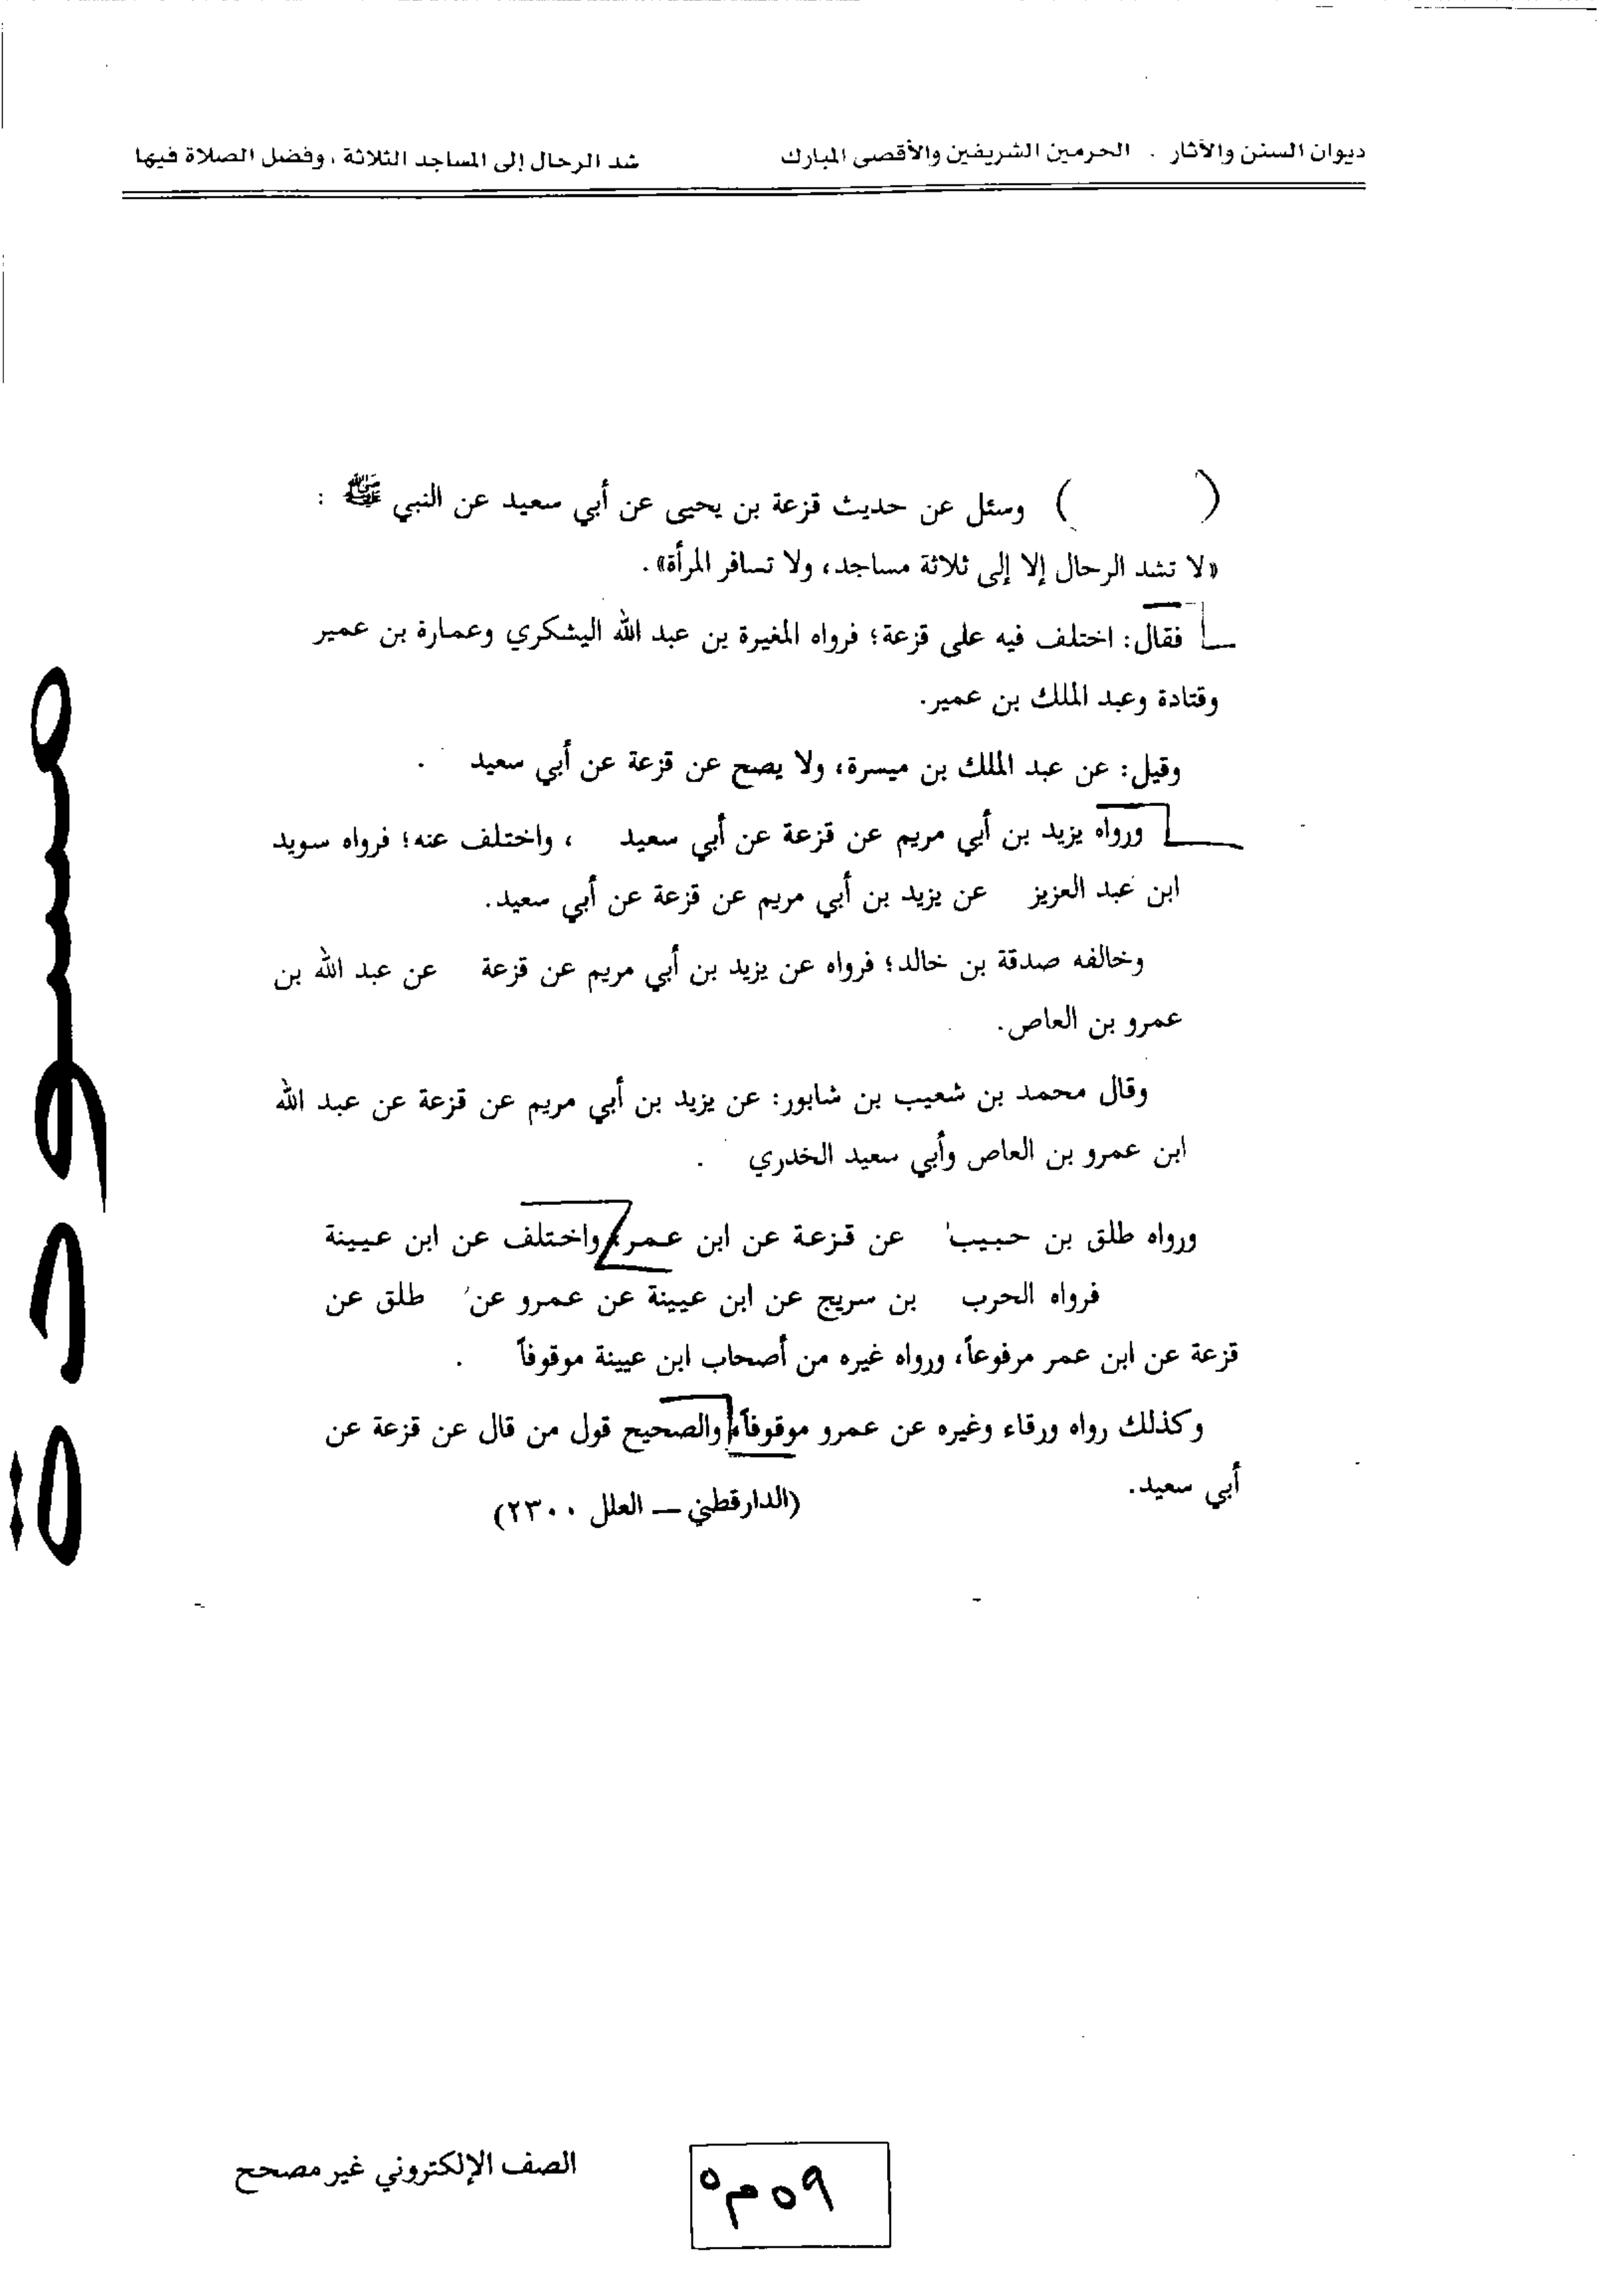 ديوان السنن والآثار . الحرمين الشريفين والأقصى المبارك شد الرحال إلى المساجد الثلاثة ، وفضل الصلاة فيها
( ) وسئل عن حديث قزعة بن يحيى عن أبي سعيد عن النبي ﷺ :
«لا تشد الرحال إلا إلى ثلاثة مساجد، ولا تسافر المرأة».
فقال: اختلف فيه على قزعة؛ فرواه المغيرة بن عبد الله اليشكري وعمارة بن عمير
وقتادة وعبد الملك بن عمير.
وقيل: عن عبد الملك بن ميسرة، ولا يصح عن قزعة عن أبي سعيد .
ورواه يزيد بن أبي مريم عن قزعة عن أبي سعيد ، واختلف عنه؛ فرواه سويد
ابن عبد العزيز عن يزيد بن أبي مريم عن قزعة عن أبي سعيد.
وخالفه صدقة بن خالد؛ فرواه عن يزيد بن أبي مريم عن قزعة عن عبد الله بن
عمرو بن العاص.
وقال محمد بن شعيب بن شابور: عن يزيد بن أبي مريم عن قزعة عن عبد الله
ابن عمرو بن العاص وأبي سعيد الخدري .
ورواه طلق بن حبيب عن قزعة عن ابن عمر، واختلف عن ابن عيينة
فرواه الحرب بن سريج عن ابن عيينة عن عمرو عن طلق عن
قزعة عن ابن عمر مرفوعاً، ورواه غيره من أصحاب ابن عيينة موقوفاً .
وكذلك رواه ورقاء وغيره عن عمرو موقوفاً، والصحيح قول من قال عن قزعة عن
أبي سعيد.
(الدارقطني – العلل ٢٣٠٠)
مسودة
٥٩ م٥
الصف الإلكتروني غير مصحح